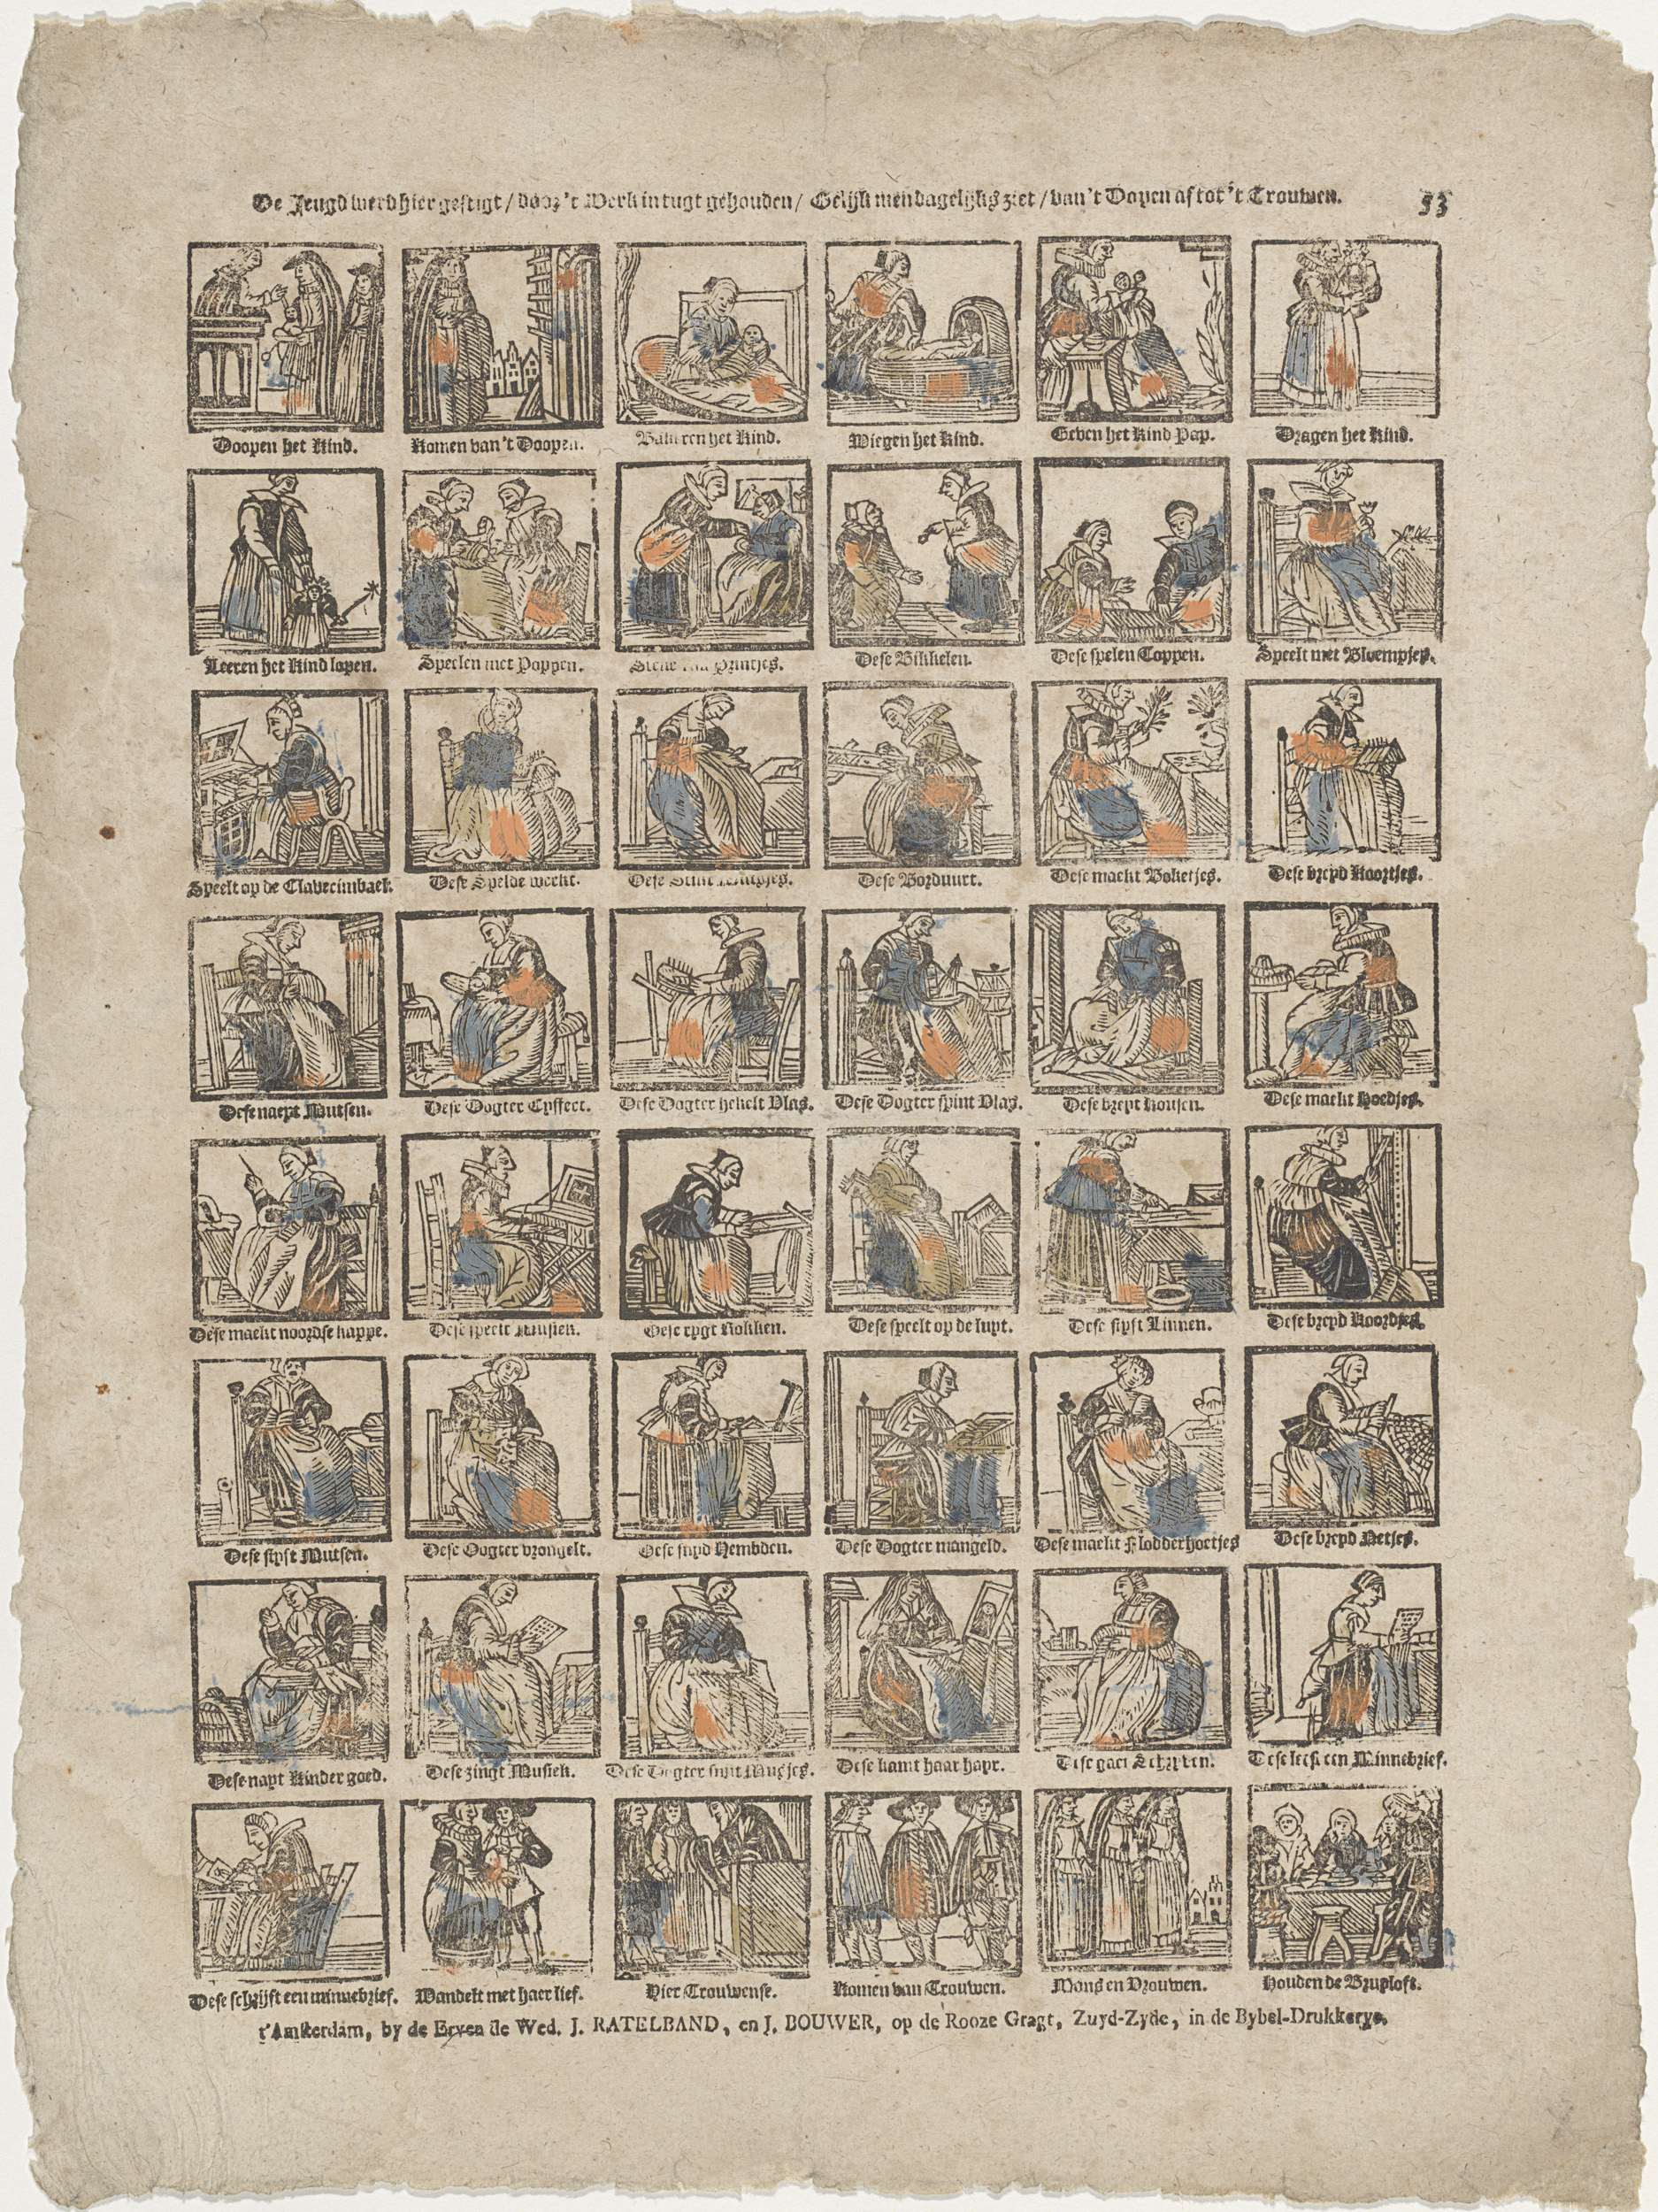 De Jeugd werd hier gestigt / door 't Werk in tugt gehouden / Gelijk men dagelijks ziet / van 't Dopen af tot 't Trouwen.
53
Doopen het Kind.
Komen van 't Doopen.
Bakeren het Kind.
Wiegen het Kind.
Geven het Kind Pap.
Dragen het Kind.
Leeren het Kind lopen.
Speelen met Poppen.
Printjes.
Dese Bikkelen.
Dese spelen Coppen.
Speelt met Bloempjes.
Speelt op de Clavecimbael.
Dese Spelde werkt.
Dese
Dese Borduurt.
Dese maekt Boketjes.
Dese breyd Koortjes.
Dese naeyt Mutsen.
Dese Dogter Cyffert.
Dese Dogter hekelt Vlas.
Dese Dogter spint Vlas.
Dese breyt Kousen.
Dese maekt Hoedjes.
Dese maekt noordse kappe.
Dese speelt Musiek.
Dese rygt Kokken.
Dese speelt op de luyt.
Dese styft Linnen.
Dese breyd Koordjes.
Dese styft Mutsen.
Dese Dogter vrongelt.
Dese snyd Hembden.
Dese Dogter mangeld.
Dese maekt Flodderhoetjes
Dese breyd Netjes.
Dese nayt Kinder goed.
Dese zingt Musiek.
Dese Dogter
Dese kamt haar hayr.
Dese
Dese leest een Minnebrief.
Dese schrijft een minnebrief.
Wandelt met haer lief.
Hier Trouwense.
Komen van Trouwen.
Mans en Vrouwen.
Houden de Bruyloft.
t'Amsterdam, by de Erven de Wed. J. RATELBAND, en J. BOUWER, op de Rooze Gragt, Zuyd-Zyde, in de Bybel-Drukkerye.